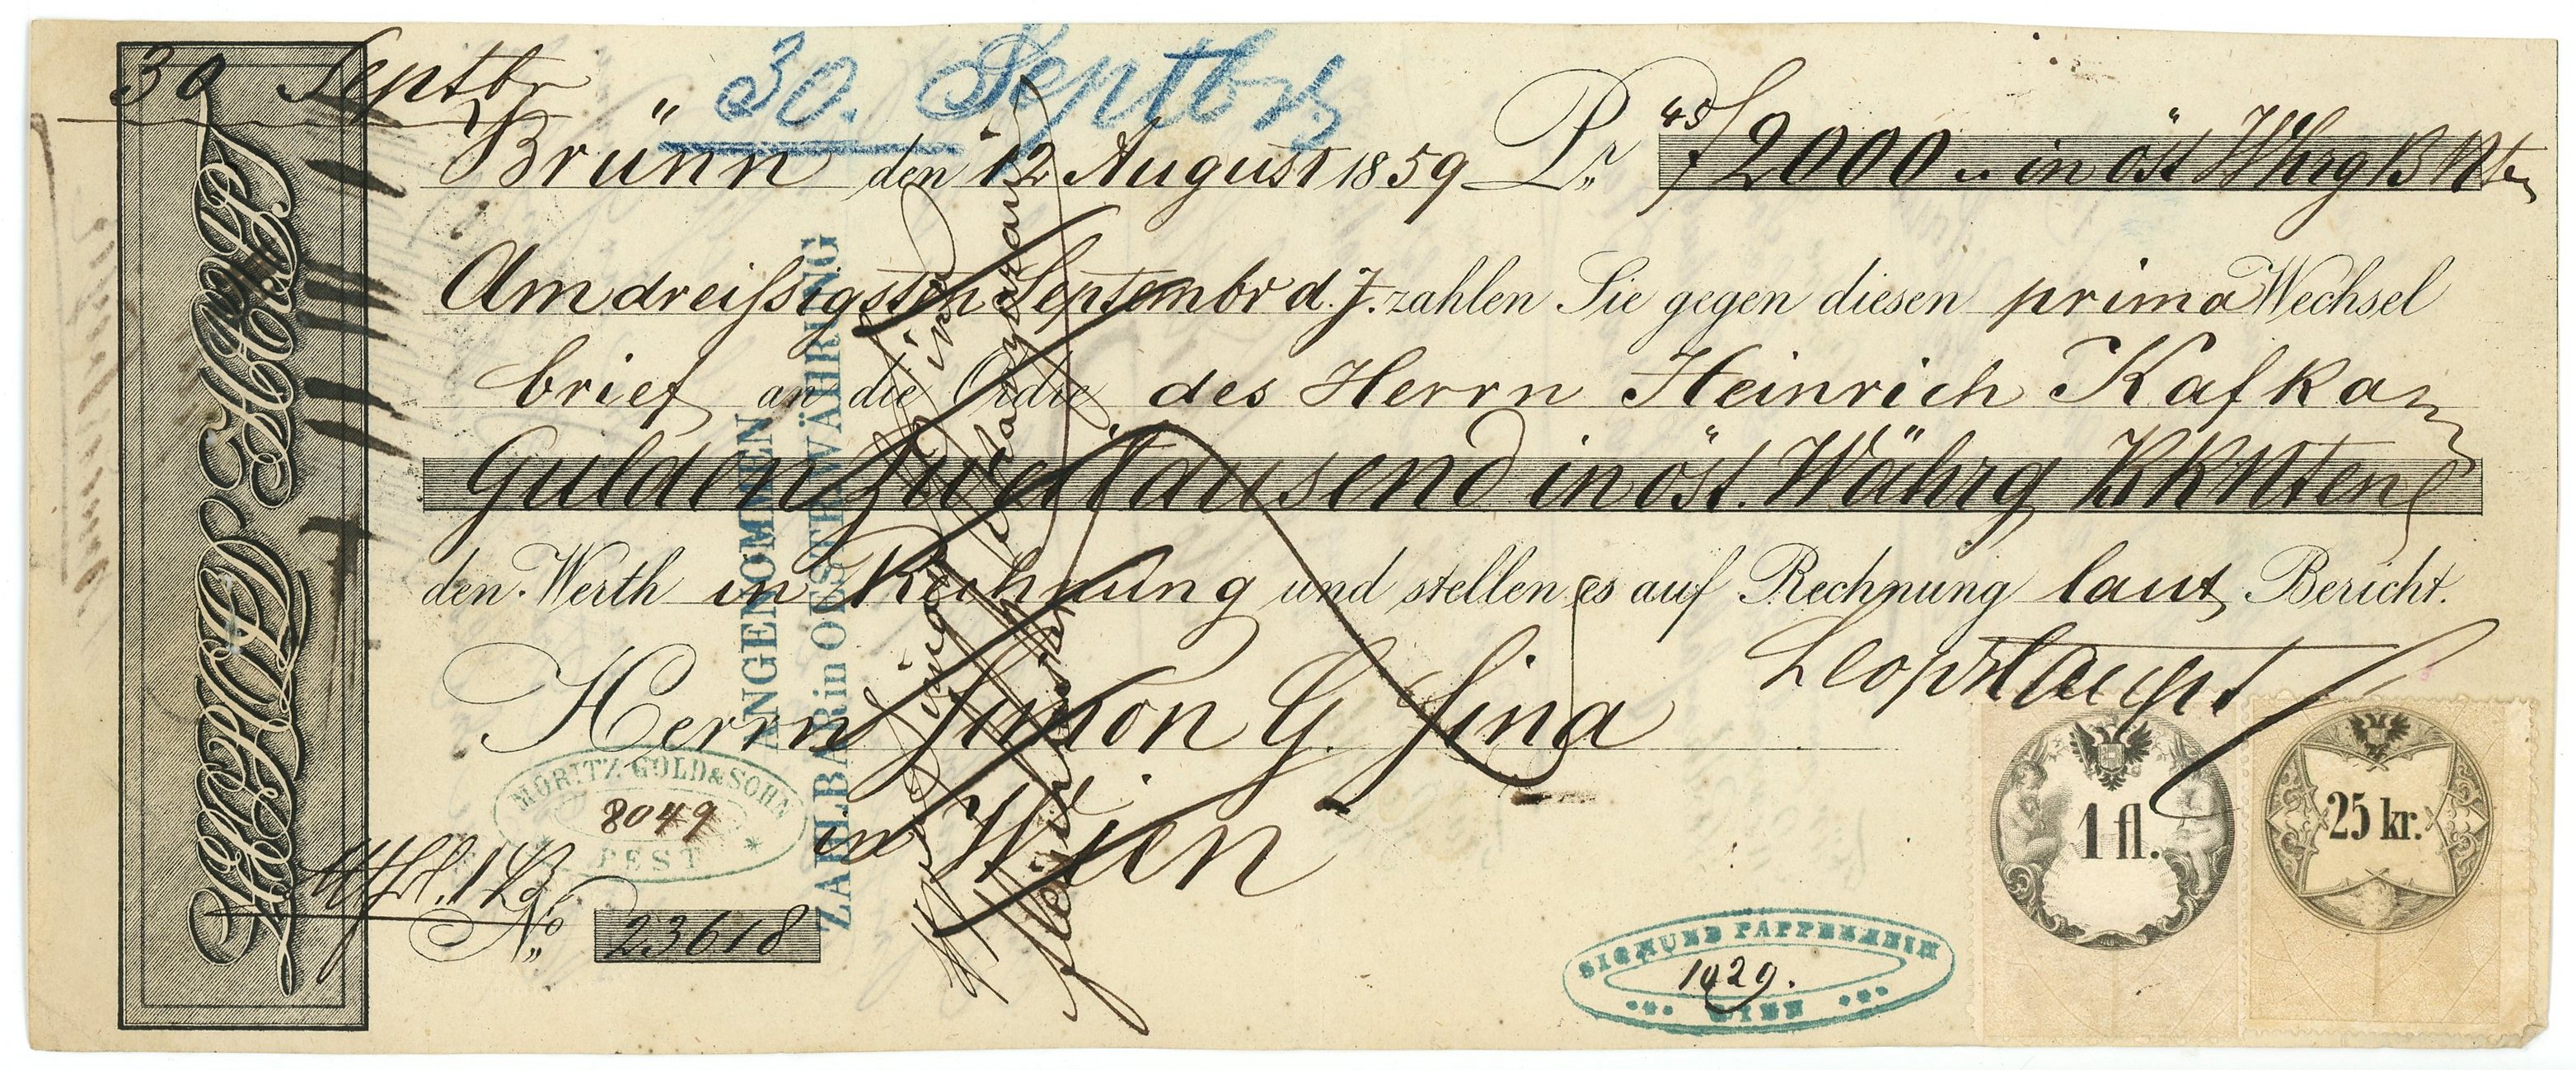 30 Septbr
30. Septbr
Brünn den 12 August 1859 Pr f 2000 .. in öst Whrg B Nten
Am dreissigsten Septembr d. J. zahlen Sie gegen diesen prima Wechsel
brief an die Ordre des Herrn Heinrich Kafka
Gulden Zwei Tausend in öst. Währg BKNten
den Werth in Rechnung und stellen es auf Rechnung laut Bericht.
Leop Haupt
Herrn Simon G. Sina
in Wien
ANGENOMMEN
ZAHLBAR in OESTE WÄHRUNG
MORITZ GOLD & SOHN
8049
PEST
No 23618
LEOPOLD HAUPT
SIGMUND PAPPENHEIM
1029.
WIEN
1 fl.
25 kr.